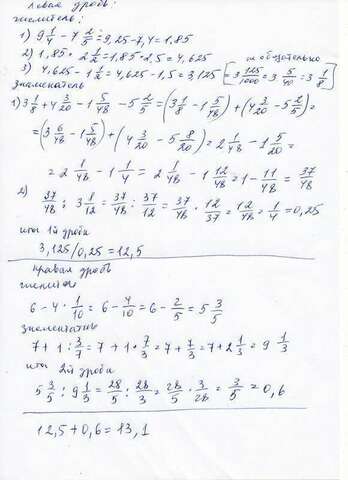 Левая дробь:
числитель:
1) 9 1/4 - 7 2/5 = 9,25 - 7,4 = 1,85
2) 1,85 · 2 1/2 = 1,85 · 2,5 = 4,625
не обязательно
3) 4,625 - 1 1/2 = 4,625 - 1,5 = 3,125 [= 3 125/1000 = 3 5/40 = 3 1/8]
знаменатель
1) 3 1/8 + 4 3/20 - 1 5/48 - 5 2/5 = (3 1/8 - 1 5/48) + (4 3/20 - 5 2/5) =
= (3 6/48 - 1 5/48) + (4 3/20 - 5 8/20) = 2 1/48 - 1 5/20 =
= 2 1/48 - 1 1/4 = 2 1/48 - 1 12/48 = 1 - 11/48 = 37/48
2)
37/48 : 3 1/12 = 37/48 : 37/12 = 37/48 · 12/37 = 12/48 = 1/4 = 0,25
итог 1й дроби
3,125/0,25 = 12,5
правая дробь
числитель
6 - 4 · 1/10 = 6 - 4/10 = 6 - 2/5 = 5 3/5
знаменатель
7 + 1 : 3/7 = 7 + 1 · 7/3 = 7 + 7/3 = 7 + 2 1/3 = 9 1/3
итог 2й дроби
5 3/5 : 9 1/3 = 28/5 : 28/3 = 28/5 · 3/28 = 3/5 = 0,6
12,5 + 0,6 = 13,1